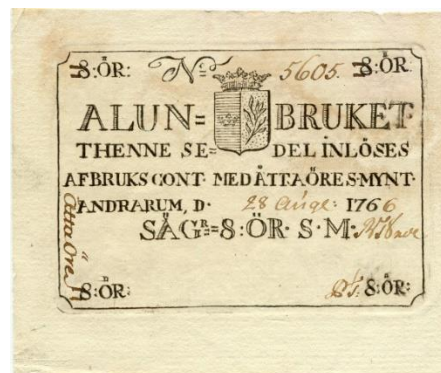 8:ÖR: N:o 5605. 8:ÖR
ALUN= BRUKET
THENNE SE= DEL INLÖSES
AF BRUKS CONT· MED ÅTTA ÖRE S·MYNT·
ANDRARUM, D· 28 Aug: 1766
SÄGR=8:ÖR· S·M·
Åtta Öre
8:ÖR: 8:ÖR: